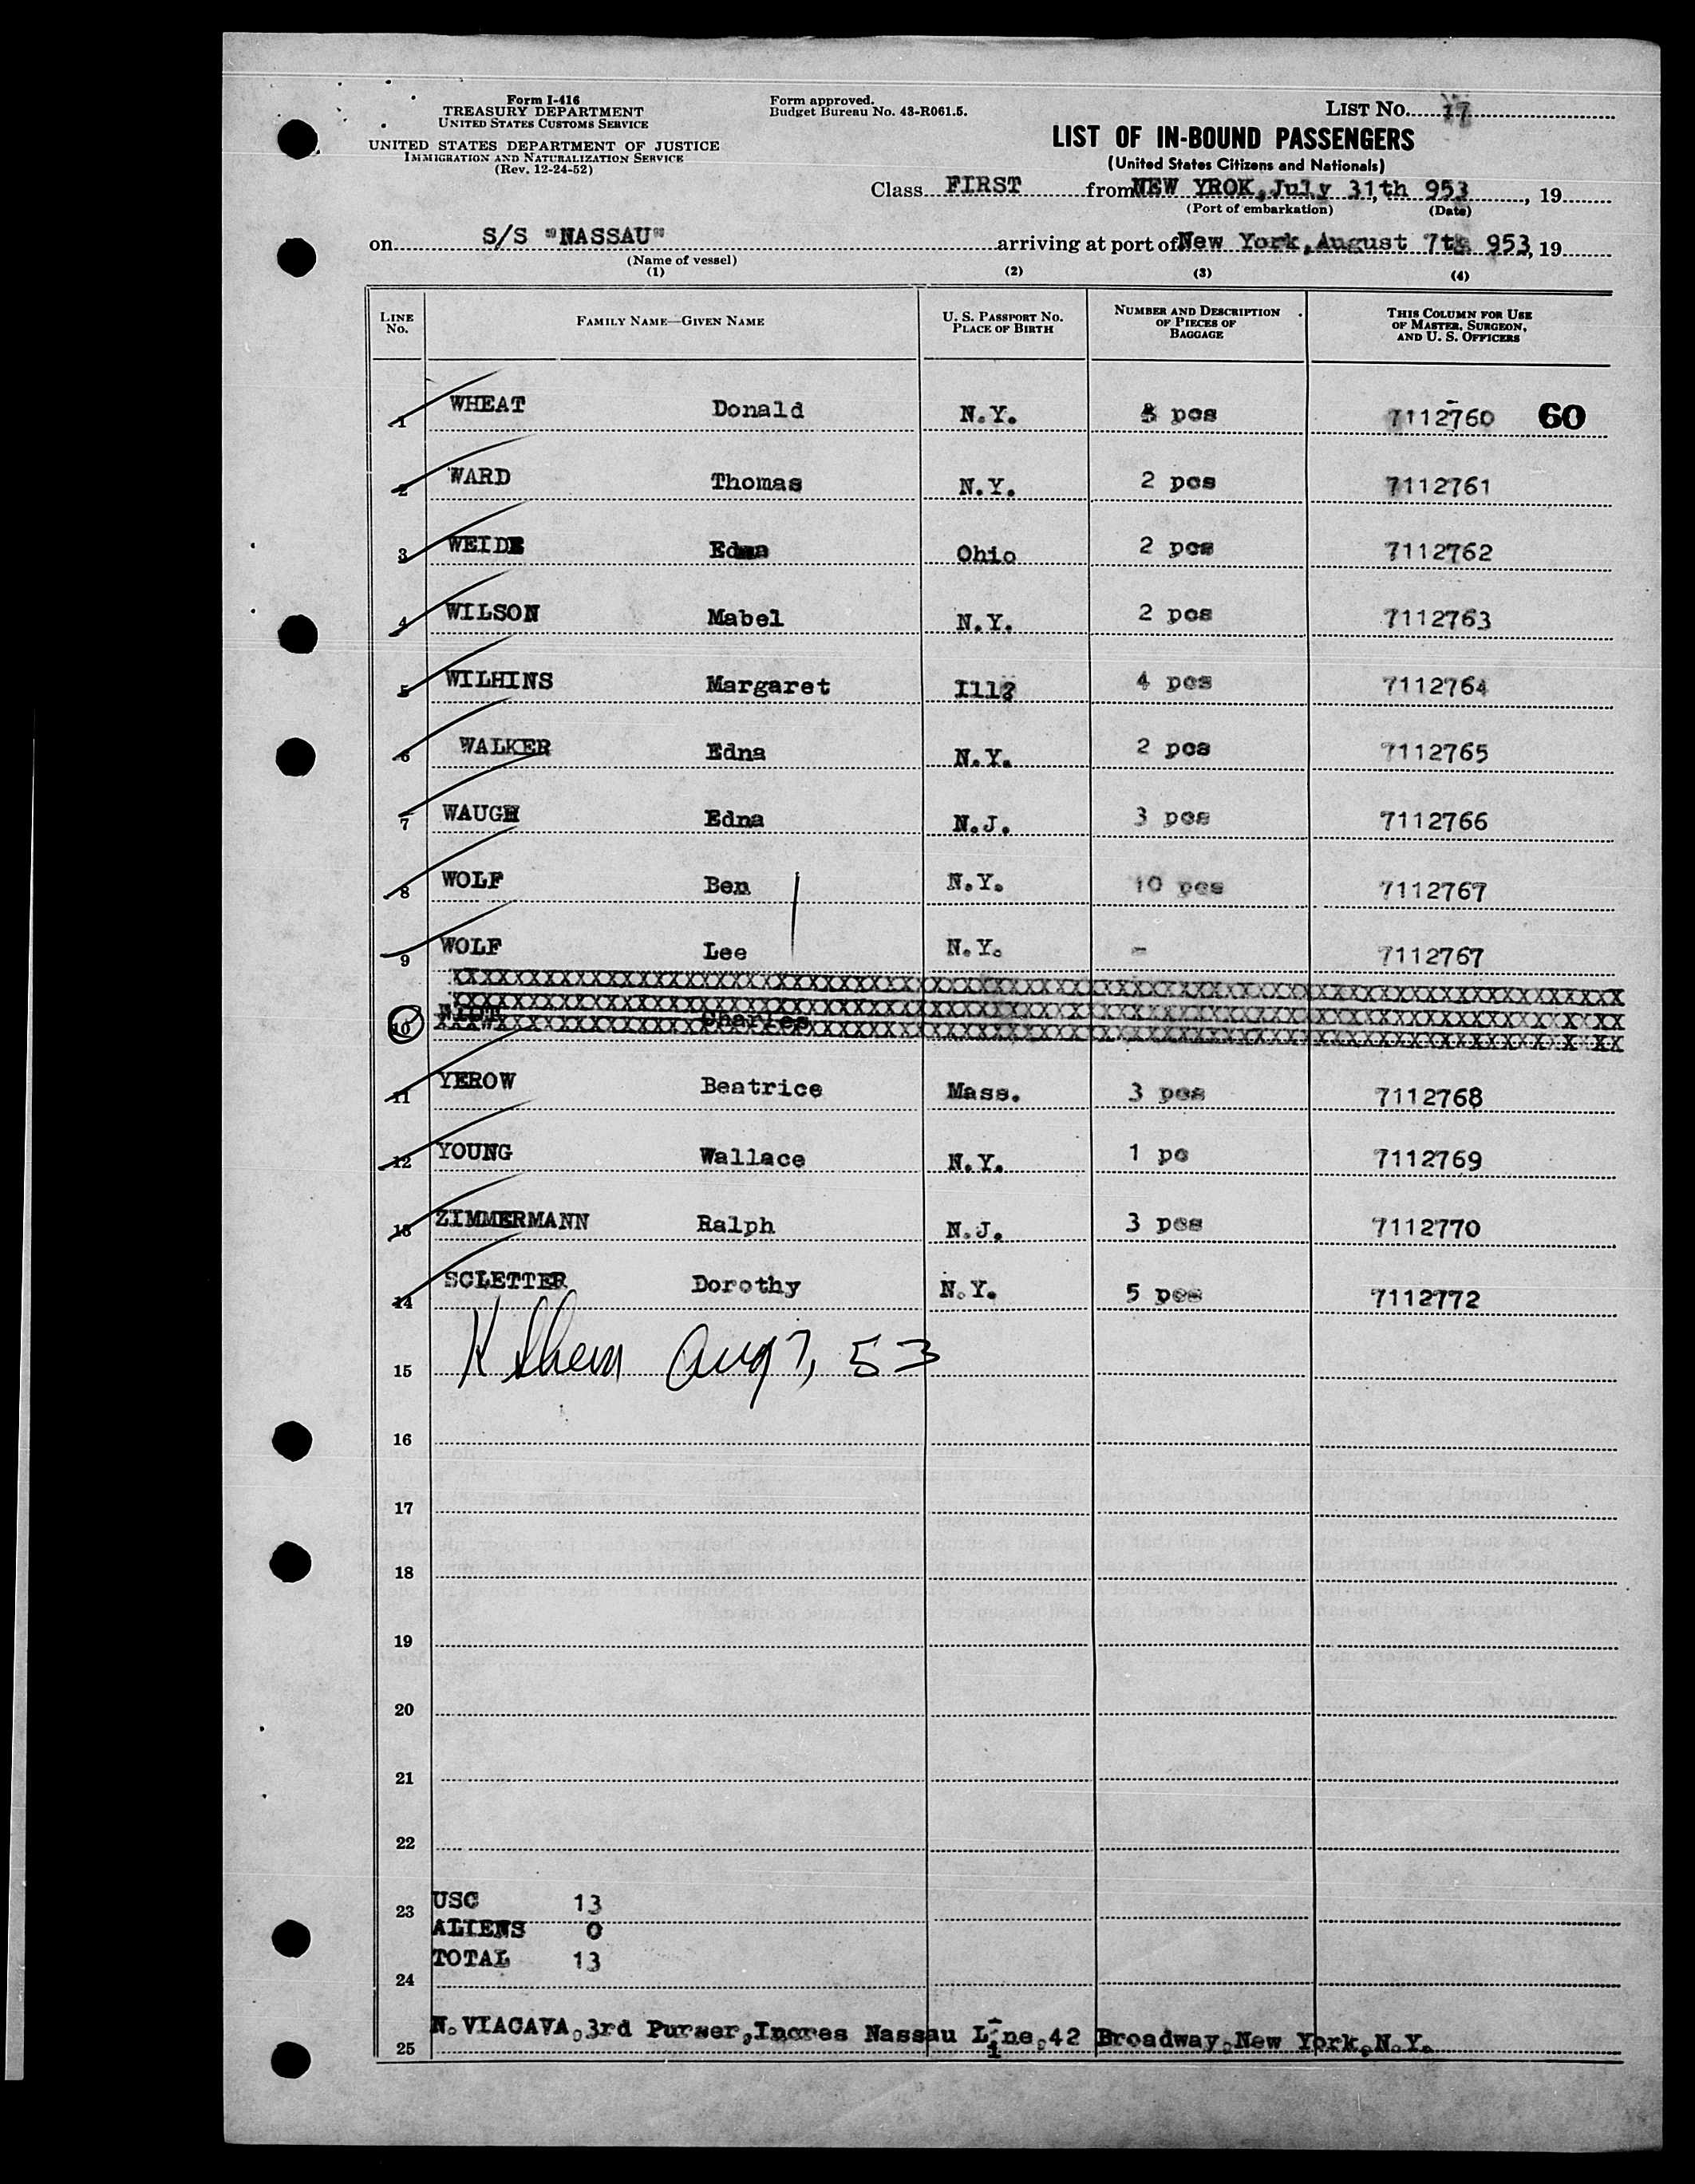 Form I-416
TREASURY DEPARTMENT
UNITED STATES CUSTOMS SERVICE
UNITED STATES DEPARTMENT OF JUSTICE
IMMIGRATION AND NATURALIZATION SERVICE
(Rev. 12-24-52)
Form approved.
Budget Bureau No. 43-R061.5.
LIST NO. 17
LIST OF IN-BOUND PASSENGERS
(United States Citizens and Nationals)
Class FIRST from NEW YROK, July 31,th 953, 19
(Port of embarkation) (Date)
on S/S "NASSAU" arriving at port of New York, August 7th 953, 19
(Name of vessel)
(1) (2) (3) (4)
LINE No. FAMILY NAME—GIVEN NAME U. S. PASSPORT NO. PLACE OF BIRTH NUMBER AND DESCRIPTION OF PIECES OF BAGGAGE THIS COLUMN FOR USE OF MASTER, SURGEON, AND U. S. OFFICERS
1 WHEAT Donald N.Y. pcs 7112760 60
2 WARD Thomas N.Y. 2 pcs 7112761
3 WEIDE Edna Ohio 2 pcs 7112762
4 WILSON Mabel N.Y. 2 pcs 7112763
5 WILHINS Margaret Ill? 4 pcs 7112764
6 WALKER Edna N.Y. 2 pcs 7112765
7 WAUGH Edna N.J. 3 pcs 7112766
8 WOLF Ben N.Y. 10 pcs 7112767
9 WOLF Lee N.Y. - 7112767
10 Charles
11 YEROW Beatrice Mass. 3 pcs 7112768
12 YOUNG Wallace N.Y. 1 pc 7112769
13 ZIMMERMANN Ralph N.J. 3 pcs 7112770
14 SCLETTER Dorothy N.Y. 5 pcs 7112772
15 Aug 7, 53
16
17
18
19
20
21
22
23 USC 13
ALIENS 0
TOTAL 13
24
N. VIACAVA, 3rd Purser, Incres Nassau Line, 42 Broadway, New York, N.Y.
25